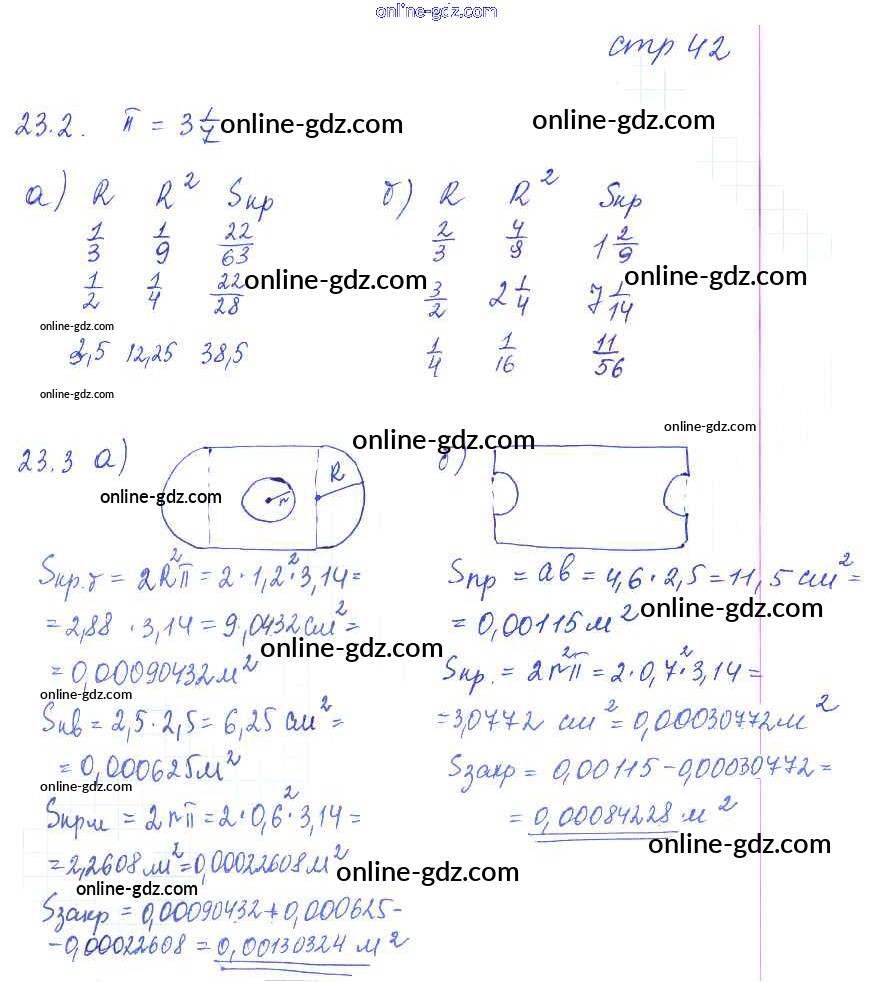 online-gdz.com
стр 42
23.2. π = 3 1/7 online-gdz.com online-gdz.com
а) R R² Sкр б) R R² Sкр
1/3 1/9 22/63 2/3 4/9 1 2/9
1/2 1/4 22/28 online-gdz.com 3/2 2 1/4 7 1/14 online-gdz.com
online-gdz.com
3,5 12,25 38,5 1/4 1/16 11/56
online-gdz.com
online-gdz.com
23.3 а) R r online-gdz.com б)
online-gdz.com
Sкр.б = 2R²π = 2·1,2²·3,14 =
= 2,88 · 3,14 = 9,0432 см² =
online-gdz.com
= 0,00090432 м²
online-gdz.com
Sкв = 2,5·2,5 = 6,25 см² =
= 0,000625 м²
online-gdz.com
Sкрм = 2rπ = 2·0,6²·3,14 =
= 2,2608 м² = 0,00022608 м²
online-gdz.com
online-gdz.com
Sзакр = 0,00090432 + 0,000625 -
- 0,00022608 = 0,00130324 м²
Sпр = ab = 4,6·2,5 = 11,5 см² =
= 0,00115 м² online-gdz.com
Sкр. = 2r²π = 2·0,7²·3,14 =
= 3,0772 см² = 0,00030772 м²
Sзакр = 0,00115 - 0,00030772 =
= 0,00084228 м²
online-gdz.com